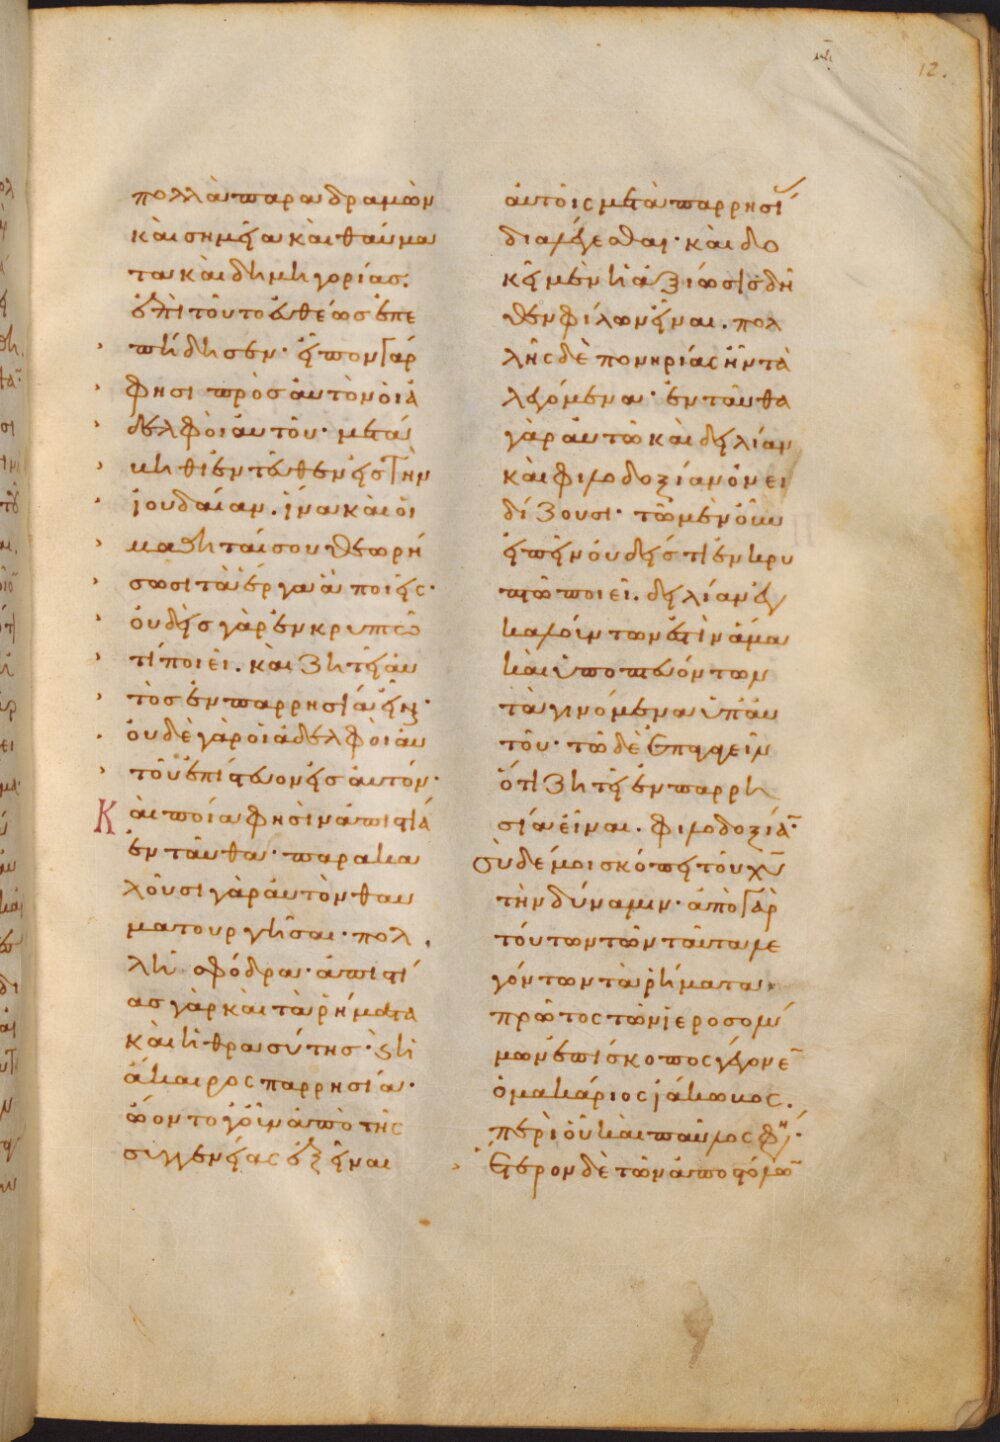 12.
πολλὰ παραδραμὼν
καὶ σημεῖα καὶ θαύμα
τα καὶ δημηγορίας.
ἐπὶ τοῦτο εὐθέως ἐπε
πήδησεν· εἶπον γάρ
φησι πρὸς αὐτὸν οἱ ἀ
δελφοὶ αὐτοῦ· μετά
βηθι ἐντεῦθεν εἰς τὴν
ἰουδαίαν. ἵνα καὶ οἱ
μαθηταί σου θεωρή
σωσι τὰ ἔργα ἃ ποιεῖς·
οὐδεὶς γὰρ ἐν κρυπτῶ
τί ποιεῖ. καὶ ζητεῖ αὐ
τὸς ἐν παρρησία εἶναι·
οὐδὲ γὰρ οἱ ἀδελφοὶ αὐ
τοῦ ἐπίστευον εἰς αὐτόν·
Καὶ ποία φησὶν ἀπιστία
ἐνταῦθα· παρακα
λοῦσι γὰρ αὐτὸν θαυ
ματουργῆσαι· πολ
λὴ σφόδρα· ἀπιστί
ας γὰρ καὶ τὰ ῥήματα
καὶ ἡ θρασύτης· καὶ ἡ
ἄκαιρος παρρησία·
ὤοντο γοῦν ἀπὸ τῆς
συγγενείας ἐξεῖναι
αὐτοῖς μετὰ παρρησί
διαλέγεσθαι· καὶ δο
κεῖ μὲν ἡ ἀξίωσις δῆ
θεν φίλων εἶναι. πολ
λῆς δὲ πονηρίας ἦν τὰ
λεγόμενα· ἐνταῦθα
γὰρ αὐτῶ καὶ δειλίαν
καὶ φιλοδοξίαν ὀνει
δίζουσι· τῶ μὲν οὖν
εἰπεῖν οὐδείς τι ἐν κρυ
πτῶ ποιεῖ. δειλίαν ἐγ
καλούντων ἐστὶν ἅμα
καὶ ὑποπτευόντων
τὰ γινόμενα ὑπ' αὐ
τοῦ· τῶ δὲ ἐπαγαγεῖν
ὅτι ζητεῖ ἐν παρρη
σία εἶναι. φιλοδοξία̅
σὺ δέ μοι σκόπει τοῦ χ̅υ̅
τὴν δύναμιν· ἀπὸ γὰρ
τούτων τῶν ταῦτα λε
γόντων τὰ ῥήματα.
πρῶτος τῶν ἱεροσολύ
μων ἐπίσκοπος γέγονε̅
ὁ μακάριος ἰάκωβος.
περὶ οὗ καὶ παῦλος φη·
ἕτερον δὲ τῶν ἀποστόλω̅